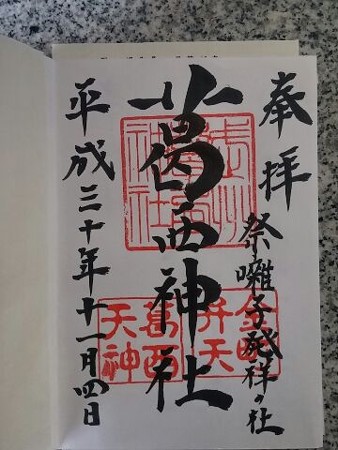 奉拝
祭囃子発祥の社
葛西神社
葛西
天神
弁天
平成三十年十一月四日